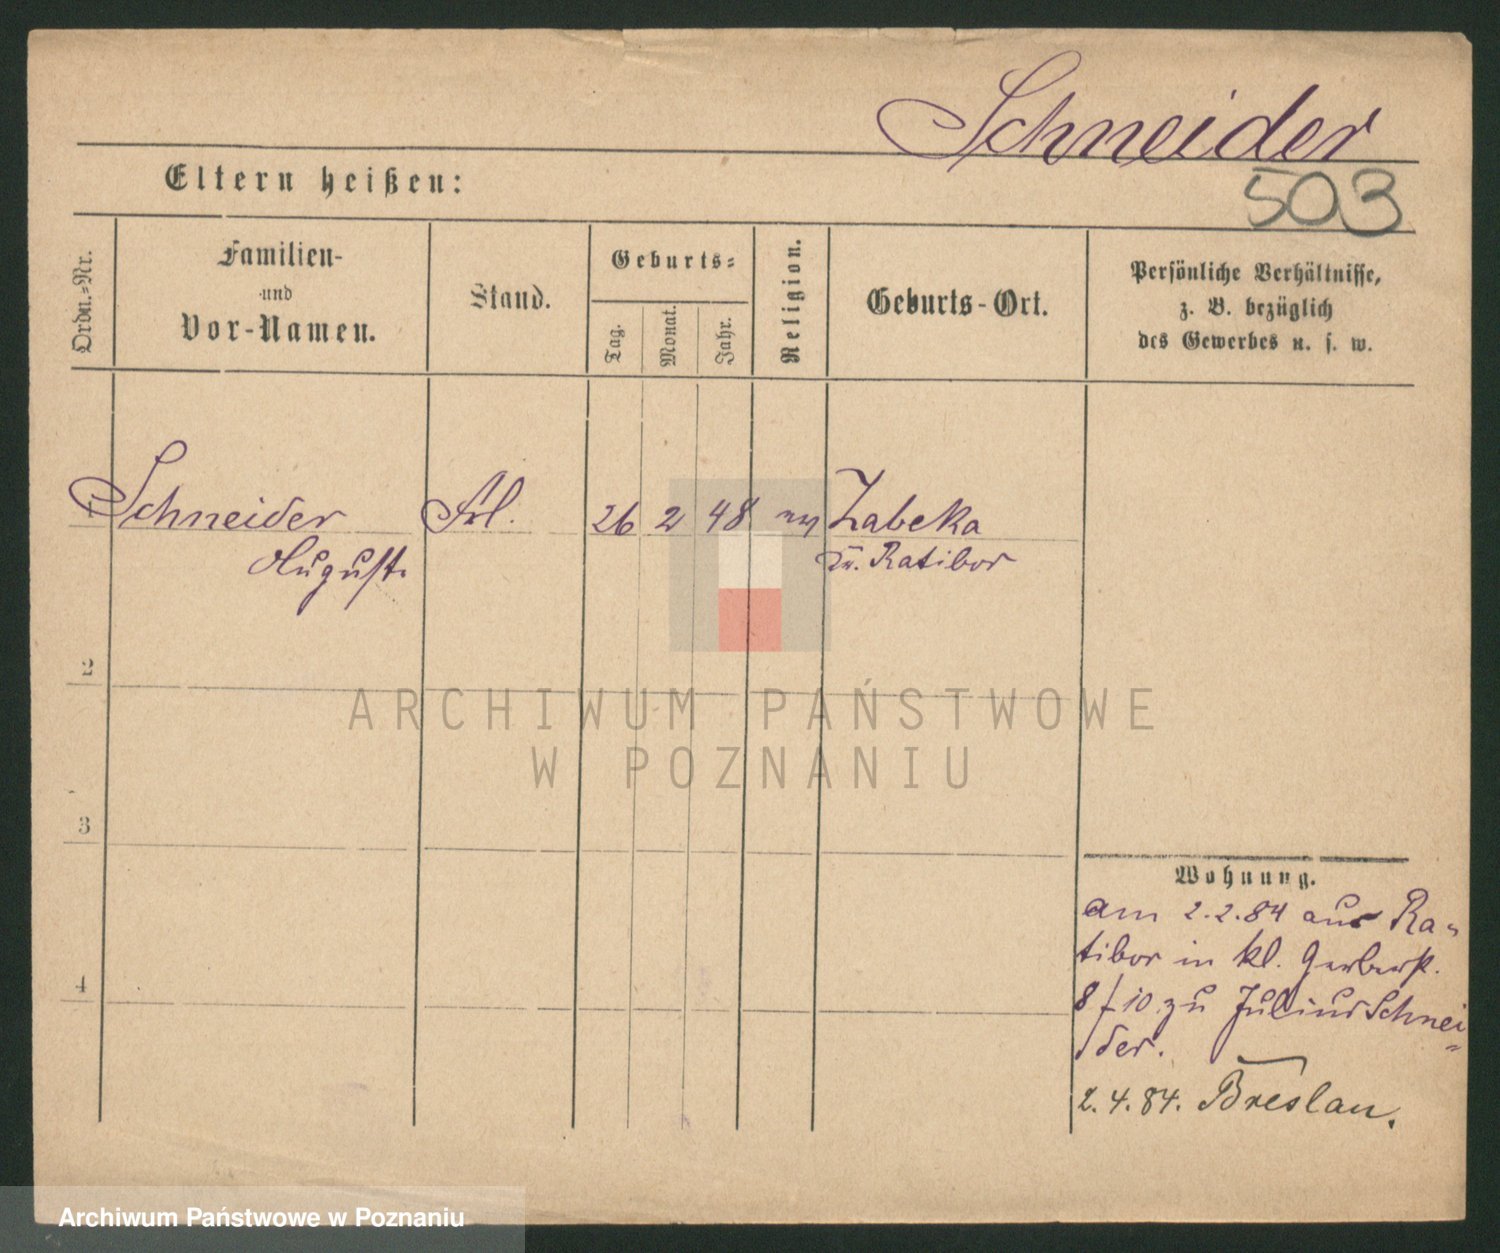 Schneider
503
Eltern heißen:
Ordn.-Nr.
Familien-
und
Vor-Namen.
Stand.
Geburts-
Tag.
Monat.
Jahr.
Religion.
Geburts-Ort.
Persönliche Verhältnisse,
z. B. bezüglich
des Gewerbes u. s. w.
1 Schneider Frl. 26 2 48 Zabeka
August. Ratibor
2
ARCHIWUM PAŃSTWOWE
W POZNANIU
3
4
Wohnung.
am 2.2.84 aus Ra-
tibor in kl. Gerberst.
8 f 10 zu Julius Schnei-
der.
2.4.84. Breslau.
Archiwum Państwowe w Poznaniu